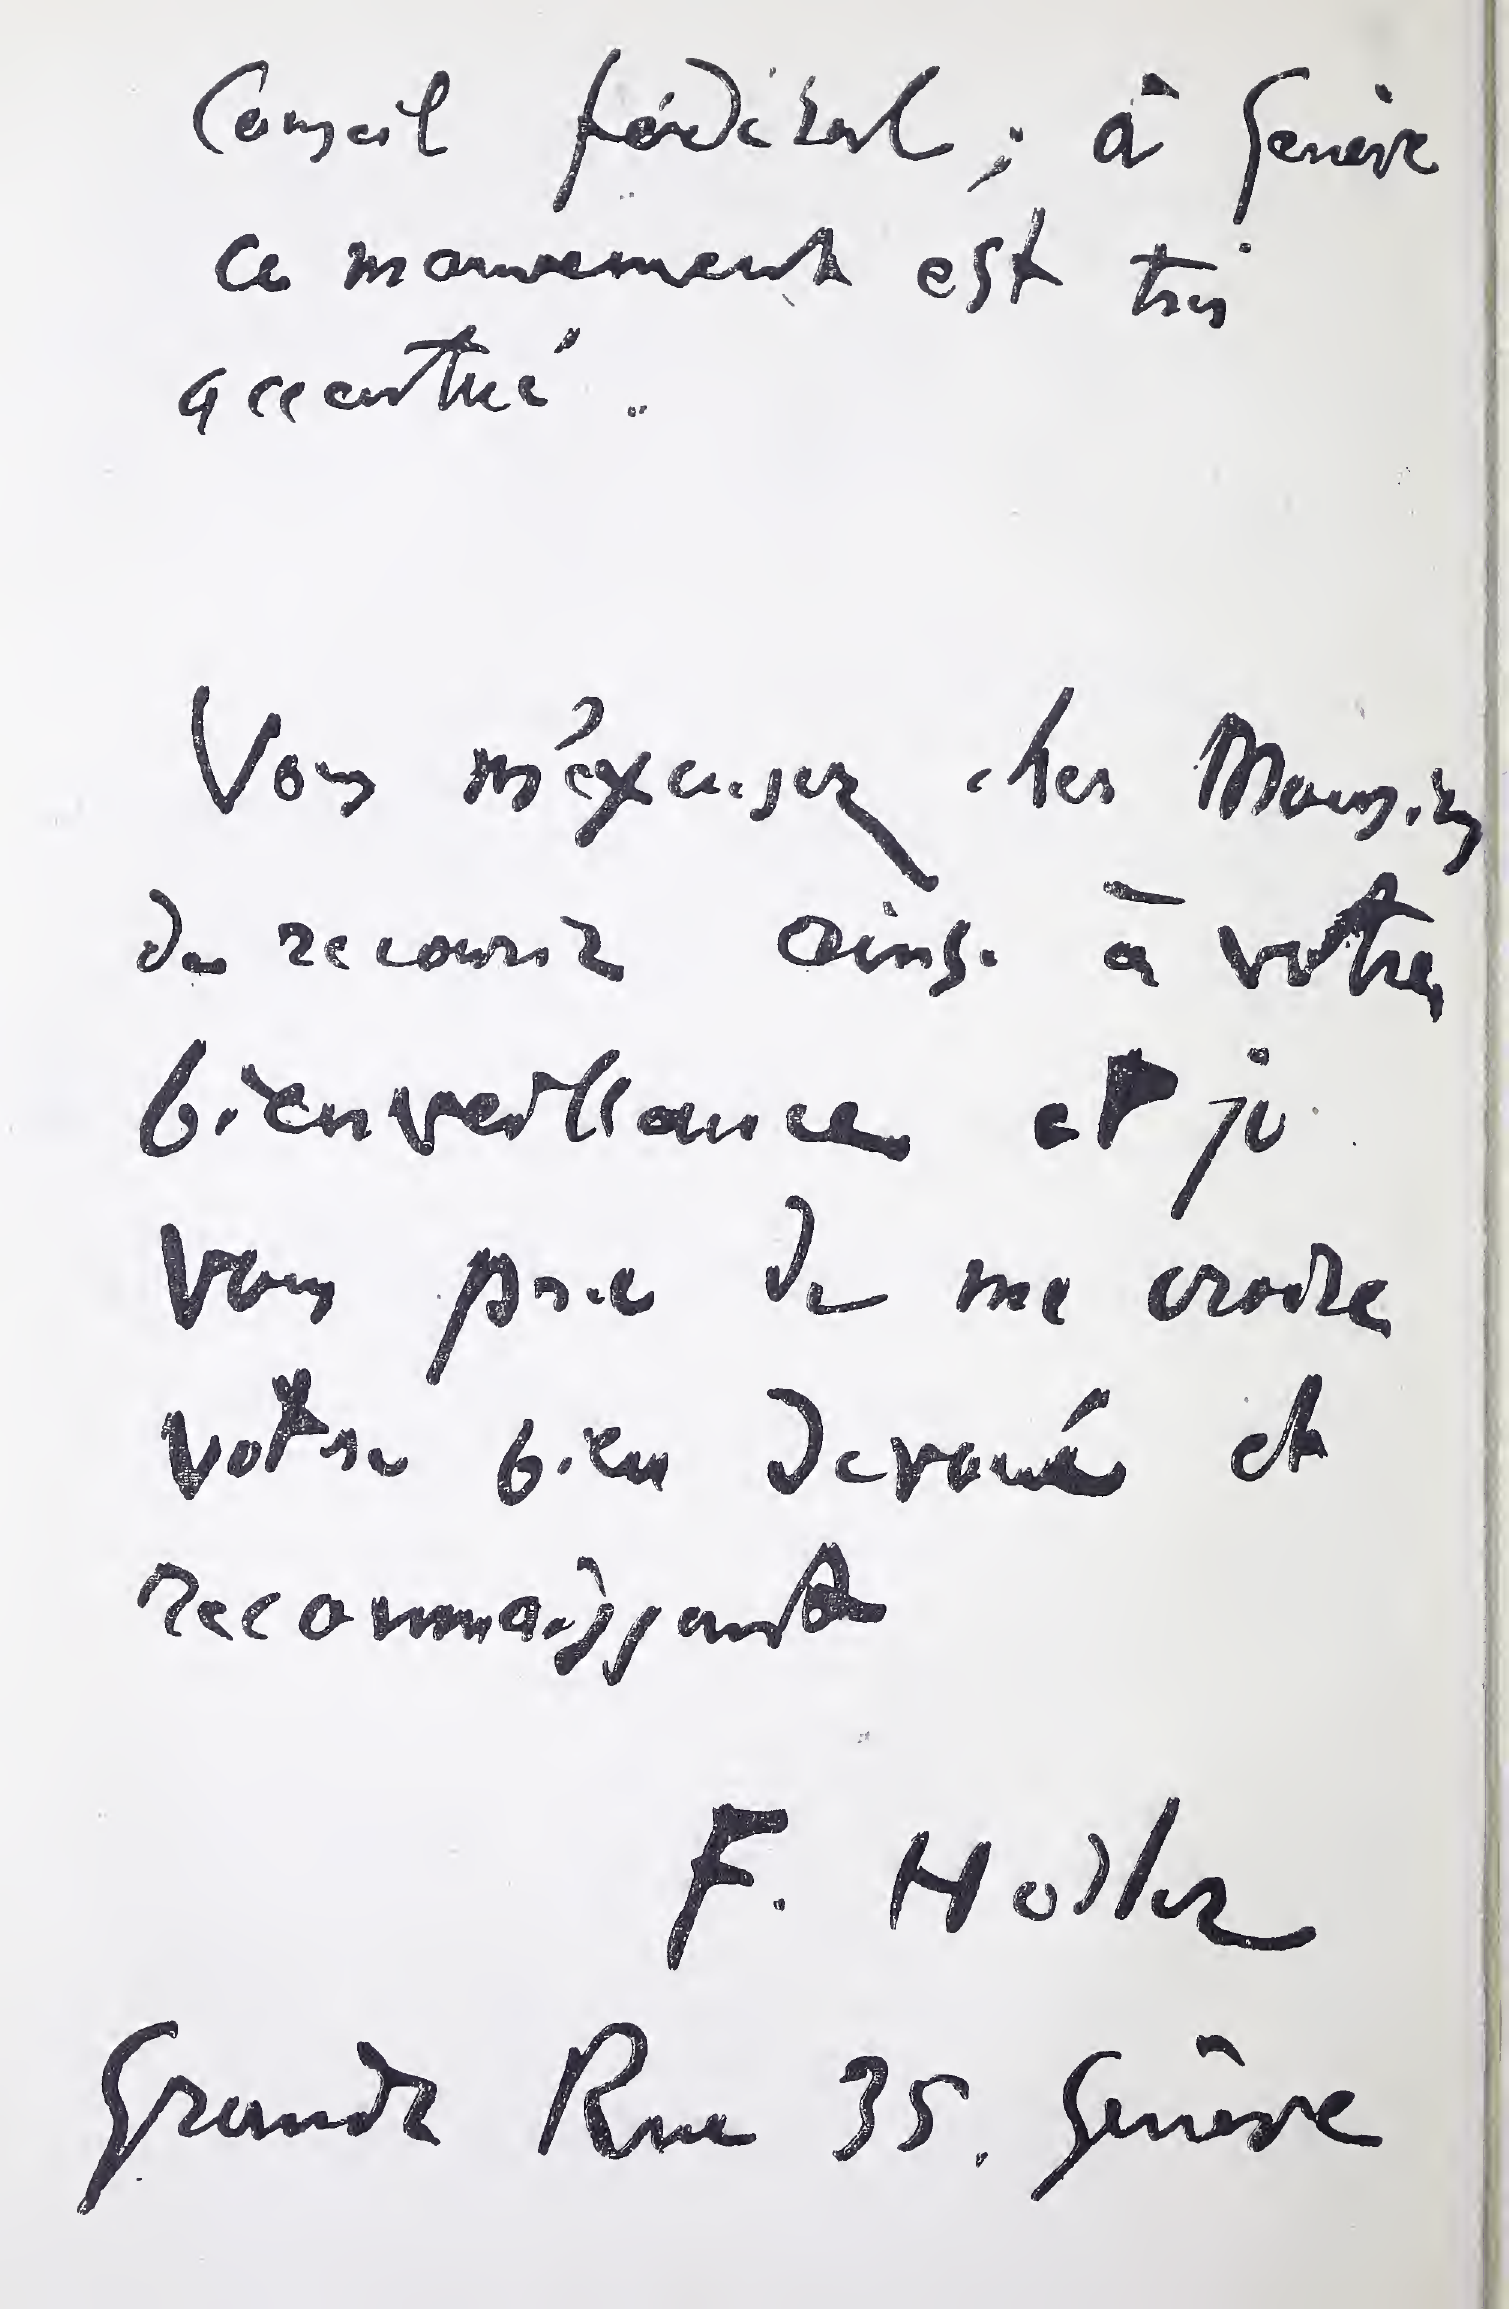 Conseil fédéral; à Genève
ce mouvement est très
accentué.
Vous m'éxcuserez cher Monsieur
de recourir ainsi à votre
bienveillance et je
vous prie de me croire
votre bien devoué et
reconnaissant
F. Hodler
Grande Rue 35. Genève